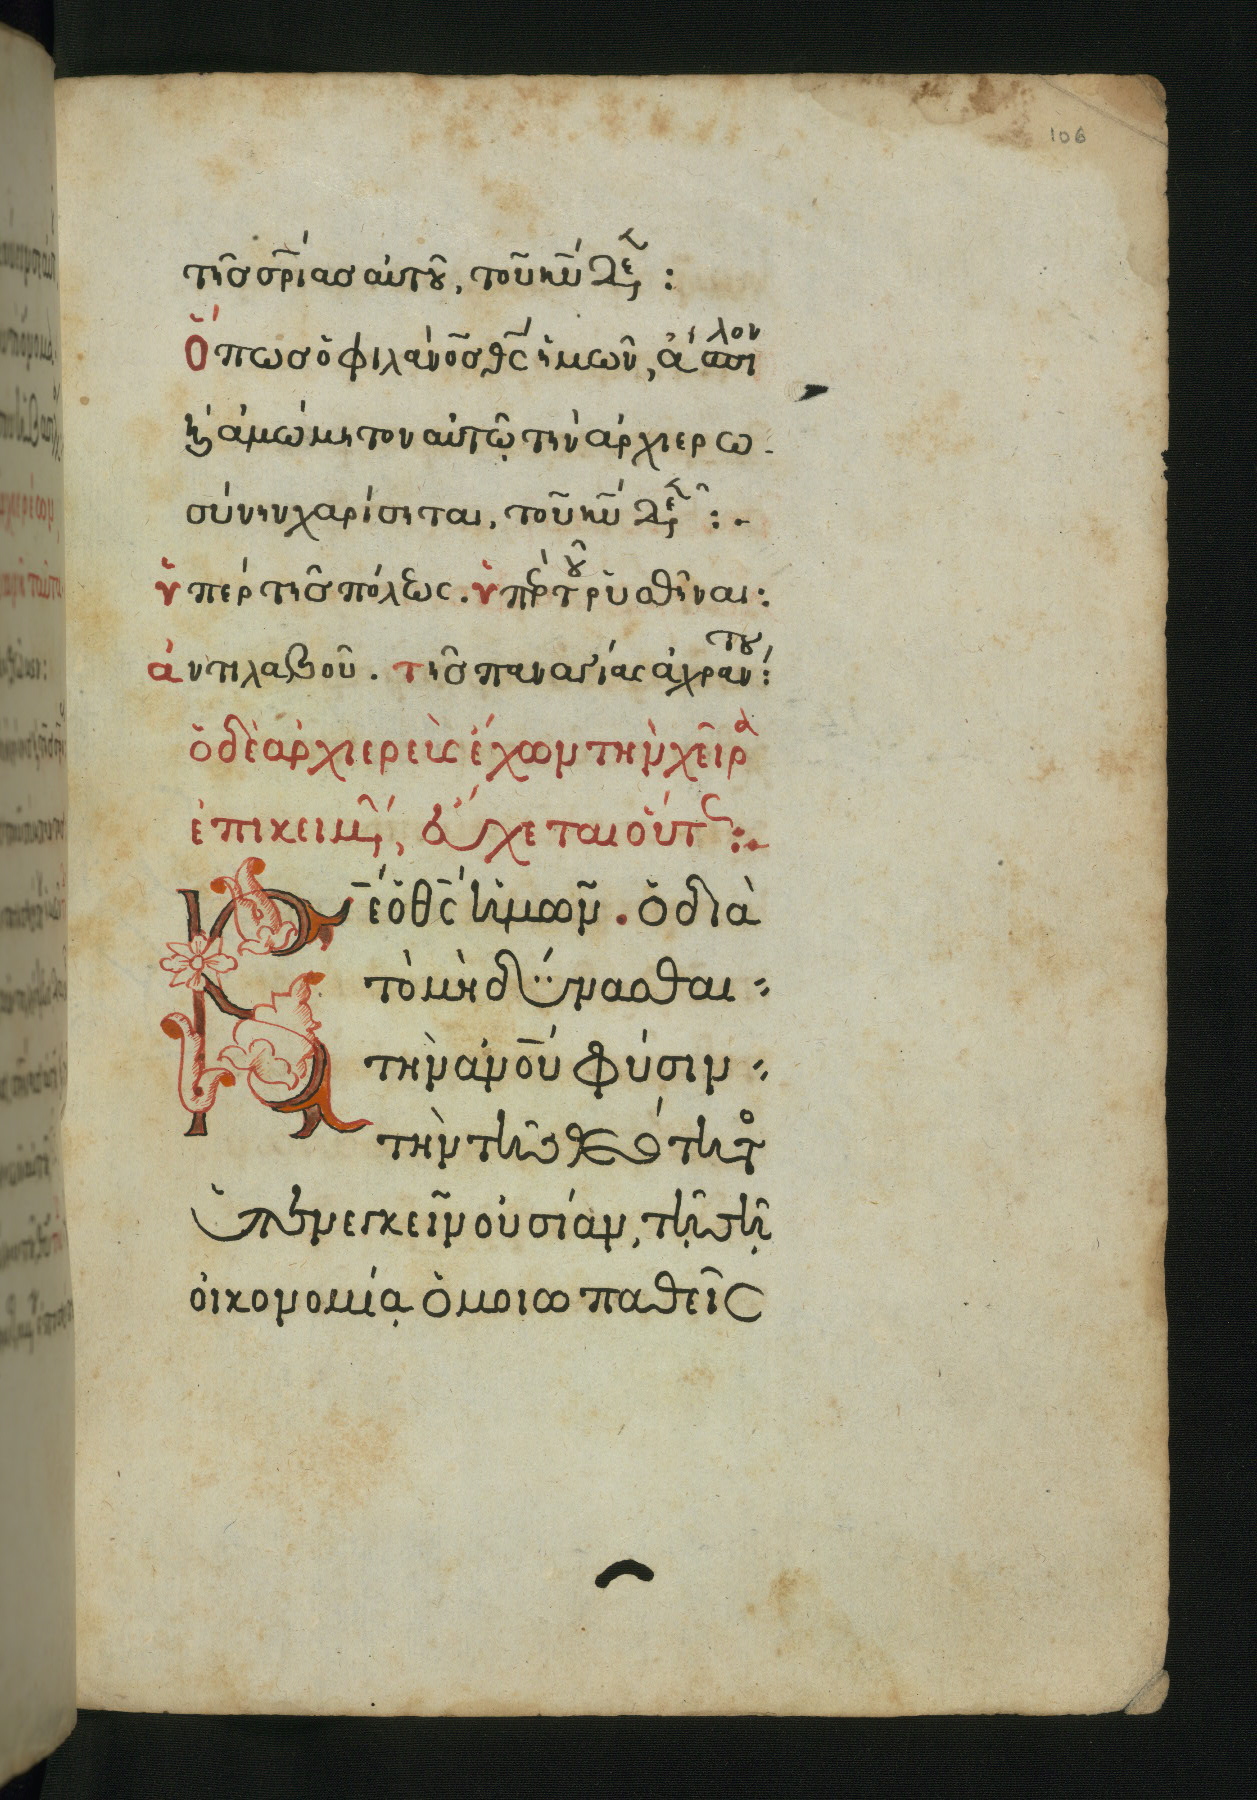 106
τῆς σ̅ρίας αὐτοῦ, τοῦ κ̅υ̅ δεη :
Ὅπως ὁ φιλάν̅ο̅ς θ̅ς̅ ἡμῶν, ἄσπιλον
κ(αὶ) ἀμώμητον αὐτῷ τὴν ἀρχιερω
σύνην χαρίσηται, τοῦ κ̅υ̅ δεη :.
ὑπὲρ τῆς πόλεως. ὑπὲρ τοῦ ρυσθῆναι :
ἀντιλαβοῦ. τῆς παναγίας ἀχράντου :
ὁ δὲ ἀρχιερεὺς ἔχων τὴν χεῖρα
ἐπικειμ, εὔχεται οὕτως :.
Κ̅ε̅ ὁ θ̅ς̅ ἡμῶν. ὁ διὰ
τὸ μὴ δύνασθαι
τὴν ἀν̅ο̅ύ φύσιν
τὴν τῆς θεότητος
ὑπενεγκεῖν οὐσίαν, τῇ σῇ
οἰκονομίᾳ ὁμοιοπαθεῖς